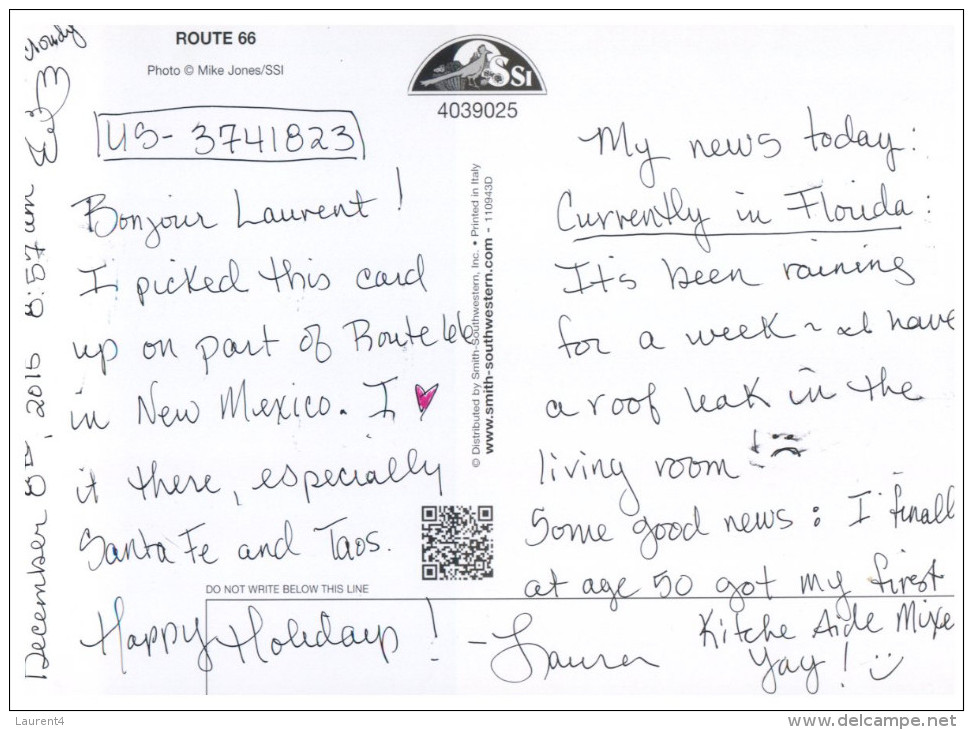 ROUTE 66
Photo © Mike Jones/SSI
SSI
4039025
US-3741823
Bonjour Laurent!
I picked this card
up on part of Route 66
in New Mexico. I ♥
it there, especially
Santa Fe and Taos.
DO NOT WRITE BELOW THIS LINE
Happy Holidays!
- Lauren
© Distributed by Smith-Southwestern, Inc. • Printed in Italy
www.smith-southwestern.com - 110943D
My news today:
Currently in Florida:
It's been raining
for a week ~ have
a roof leak in the
living room
Some good news: I finall
at age 50 got my first
Kitche Aide Mixe
Yay!
December 2015 8:57 am
cloudy
Laurent4
www.delcampe.net